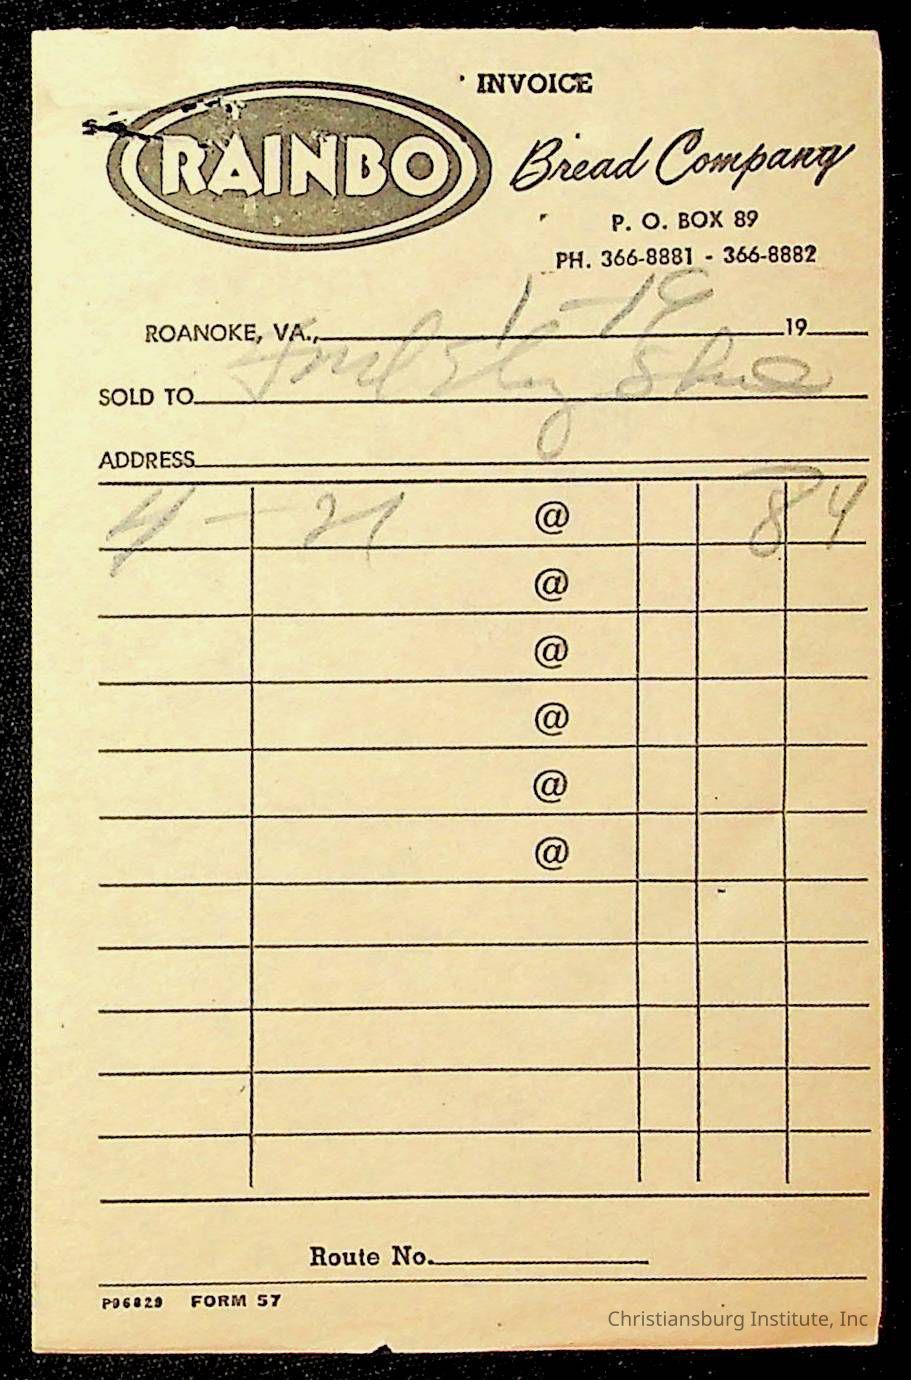 INVOICE
RAINBO
Bread Company
P. O. BOX 89
PH. 366-8881 - 366-8882
1-19
ROANOKE, VA., 19
SOLD TO
ADDRESS
4 - 21 @ 84
@
@
@
@
@
Route No.
P96829 FORM 57
Christiansburg Institute, Inc